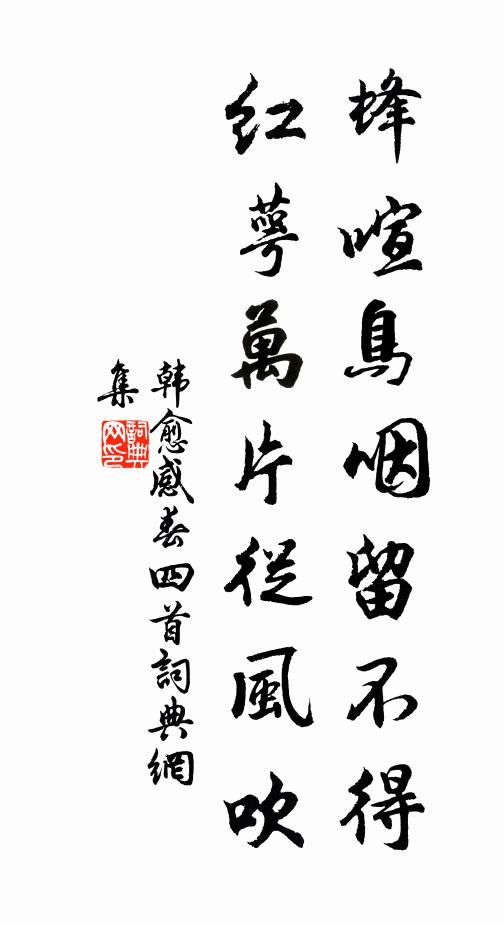 蜂喧鳥咽留不得
紅萼萬片從風吹
韩愈感春四首詞典網
集
詞典
网印